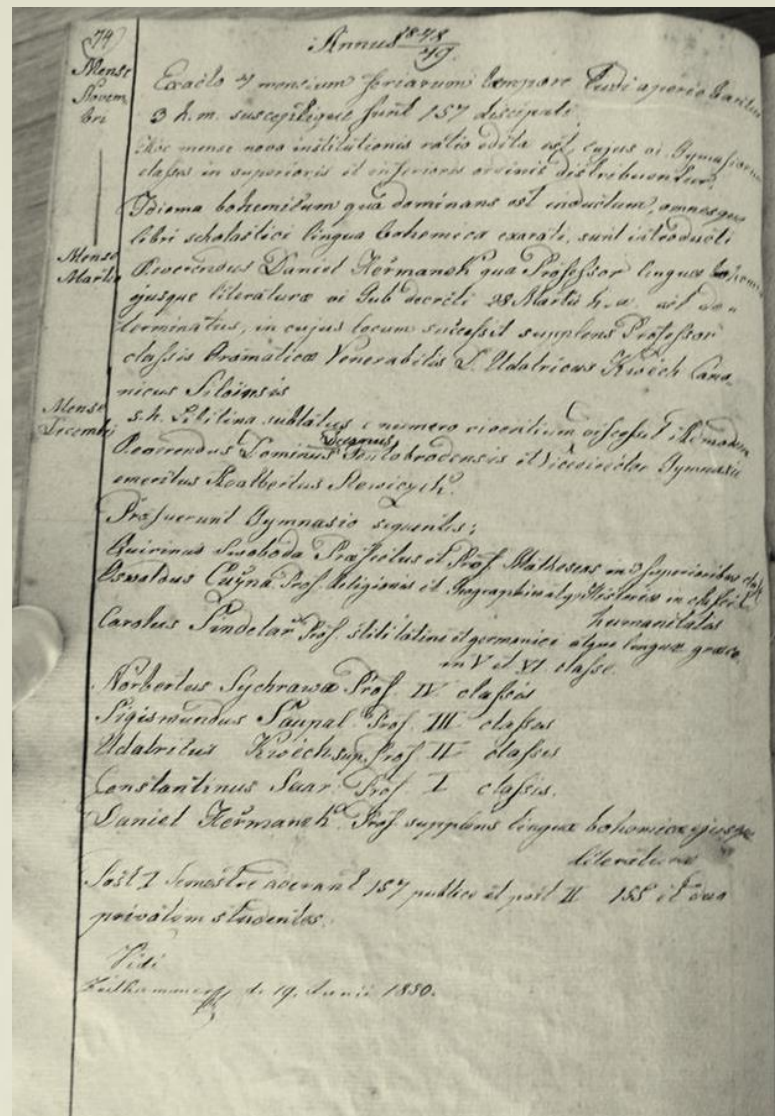 74
Annus 1848/49.
Mense Novem bri
Exacto 7 mensium feriarum tempore Ludi aperio
3 h. m. susceptique sunt 157 discipuli.
Hoc mense nova institutionis ratio edita est, cujus vi Gymnasiorum
classes in superioris et inferioris ordinis distribuentur.
Idioma bohemicum qua dominans est inductum, omnesque
libri scholastici lingua bohemica exarati, sunt introducti
Mense Martio
Reverendus Daniel Heřmanek qua Professor linguæ bohemicæ
ejusque literaturæ vi Gub decreti 28 Martii h. a. est de=
terminatus, in cujus locum successit supplens Professor
classis Gramaticæ Venerabilis D. Udalricus Kwěch Cano=
nicus Siloënsis
Mense Decembri
s. h. Libitina sublatus e numero viventium discessit
Reverendus Dominus Decanus Teutobrodensis et Vicedirector Gymnasii
emeritus Adalbertus
Præfuerunt Gymnasio sequentes:
Quirinus Swoboda Præfectus et Prof. Matheseos in 3 superioribus
Oswaldus Prof. Religionis et Geographiæ atq. Historiæ in classi
humanitatis
Carolus Šindelař Prof. stili latini et germanici atque linguæ græcæ
in V et VI classe.
Norbertus Sychrawa Prof. IV classis
Sigismundus Saupal Prof. III classis
Udalricus Kwěch sup. Prof II classis
Constantinus Saar Prof. I classis.
Daniel Heřmanek Prof. supplens linguæ bohemicæ ejusque
literaturæ
Post I Semestre aderant 157 publice et post II 155 et duo
privatim studentes.
Vidi
Zeithammer d. 19. Junii 1850.